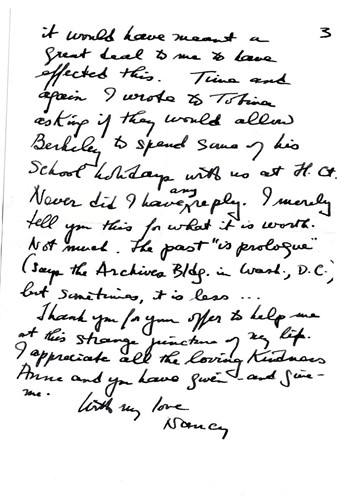 3
it would have meant a
great deal to me to have
effected this. Time and
again I wrote to Tobina
asking if they would allow
Berkeley to spend some of his
School holidays with us at H. Ct.
Never did I have any reply. I merely
tell you this for what it is worth.
Not much. The past "is prologue"
(says the Archives Bldg. in Wash., D.C.)
but sometimes, it is less ...
Thank you for your offer to help me
at this strange juncture of my life.
I appreciate all the loving kindness
Anne and you have given - and give -
me.
With my love
Nancy